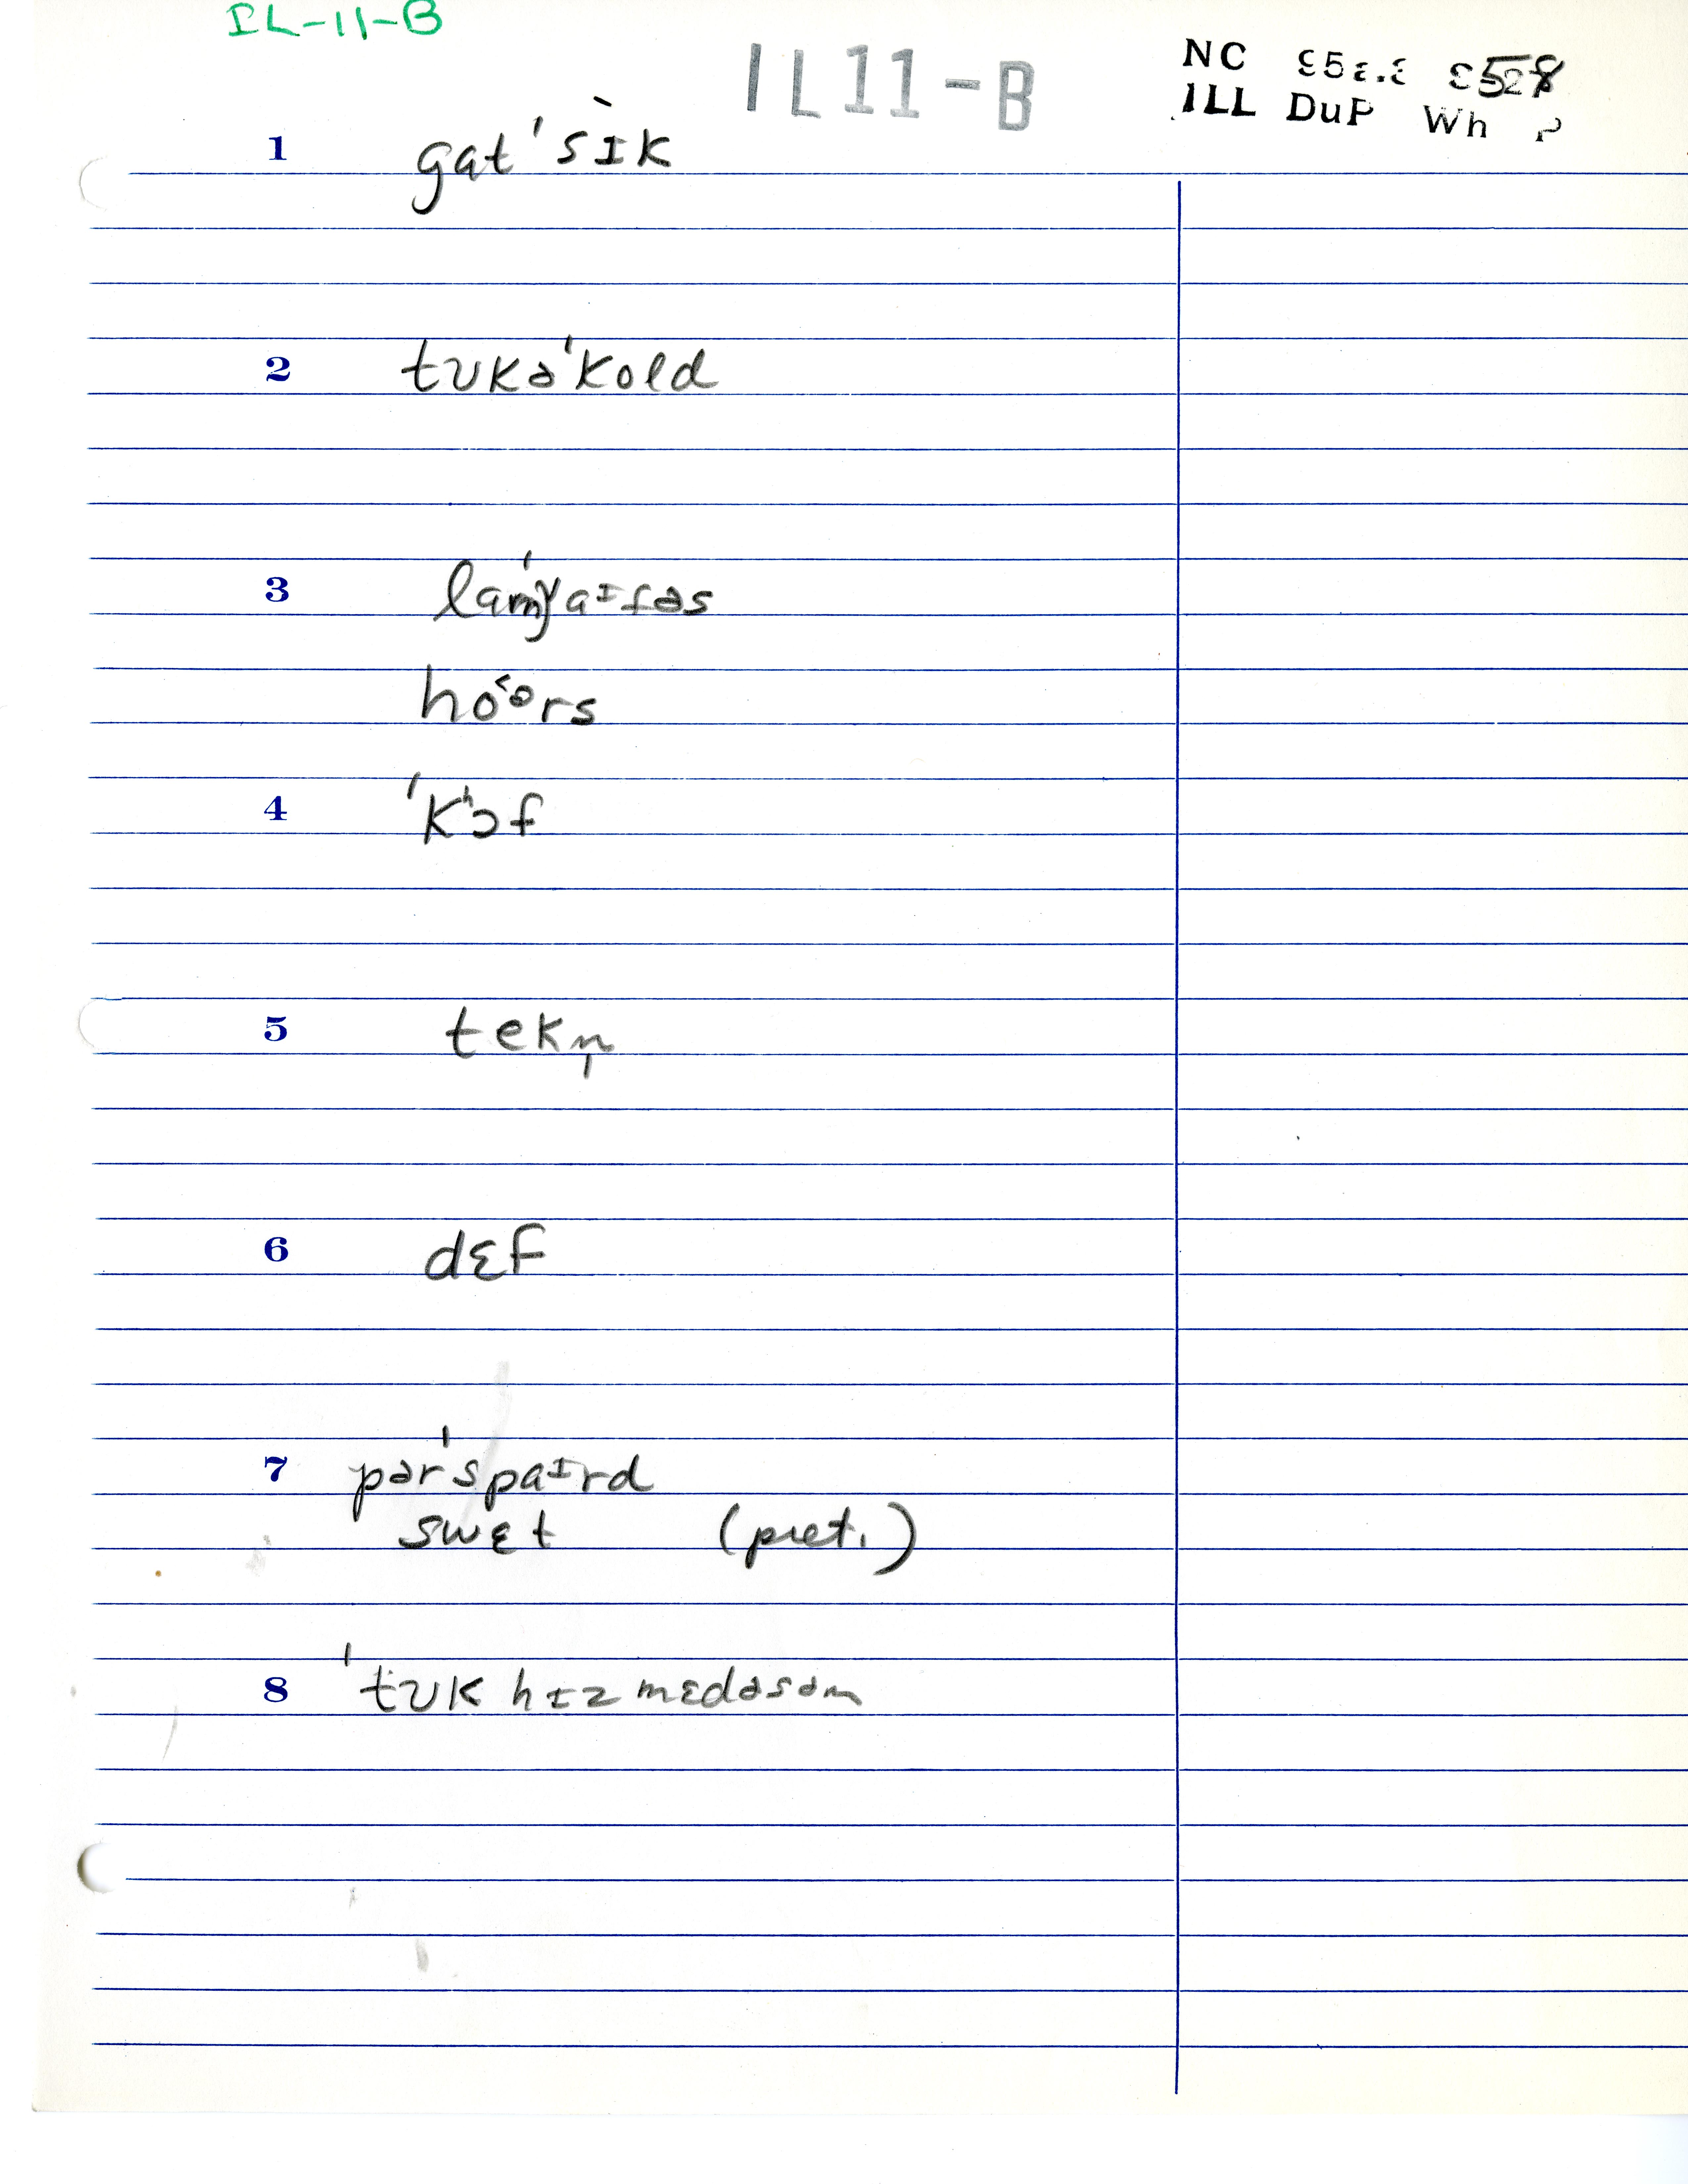 IL-11-B
IL11-B
NC
ILL DuP Wh
1 gat'sɪk
2 tʊkə'kold
3
ho˂ərs
4 'kʰɔf
5 tekn̩
6 dɛf
7 pər'spaɪrd
swɛt (pret.)
8 'tʊk hɪz mɛdəsəm